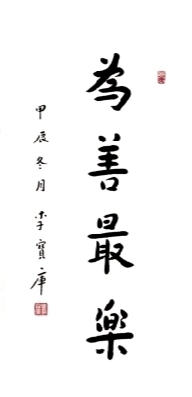 為善最樂
甲辰冬月李寶庫